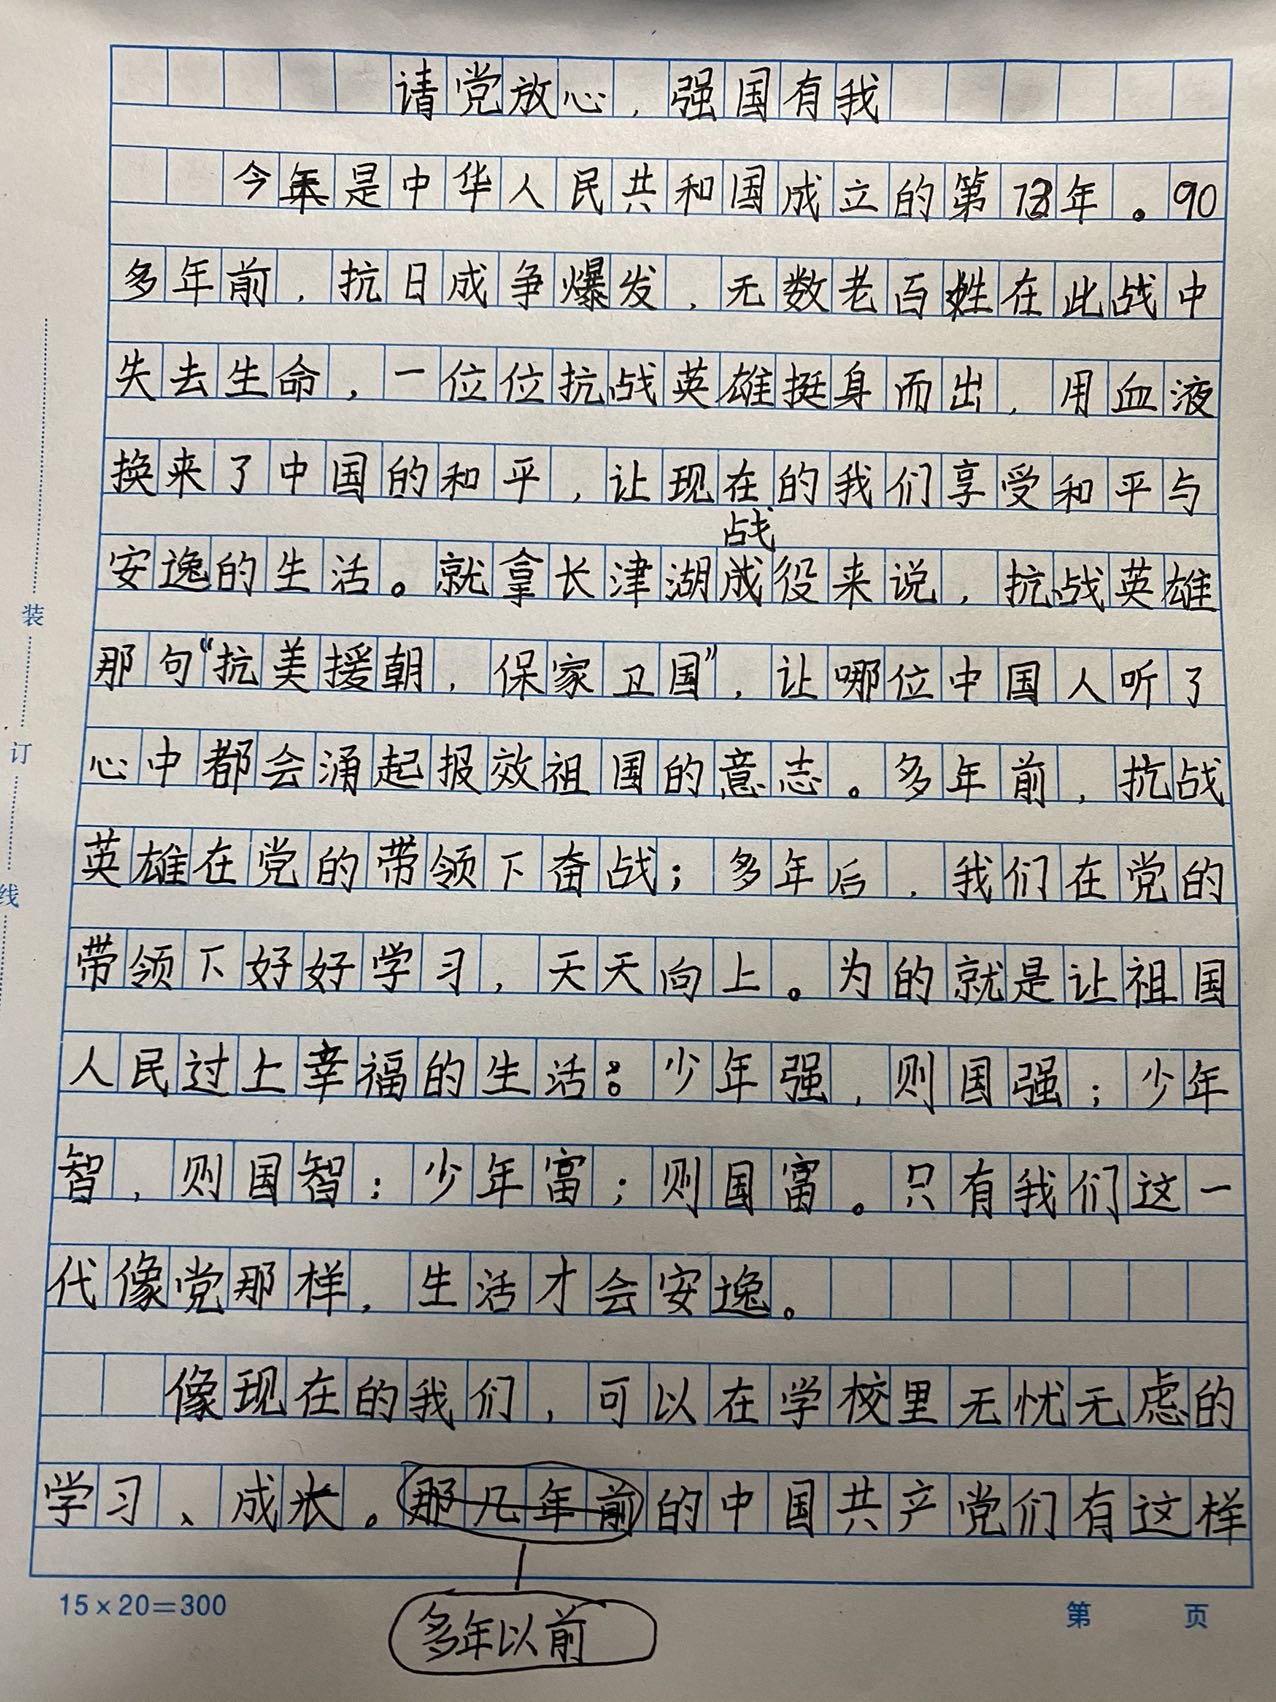 请党放心，强国有我
今年是中华人民共和国成立的第73年。90
多年前，抗日成争爆发，无数老百姓在此战中
失去生命，一位位抗战英雄挺身而出，用血液
换来了中国的和平，让现在的我们享受和平与
战
安逸的生活。就拿长津湖成役来说，抗战英雄
那句“抗美援朝，保家卫国”，让哪位中国人听了
心中都会涌起报效祖国的意志。多年前，抗战
英雄在党的带领下奋战；多年后，我们在党的
带领下好好学习，天天向上。为的就是让祖国
人民过上幸福的生活：少年强，则国强；少年
智，则国智；少年富；则国富。只有我们这一
代像党那样，生活才会安逸。
像现在的我们，可以在学校里无忧无虑的
学习、成长。那几年前的中国共产党们有这样
多年以前
15×20=300
第 页
装
订
线